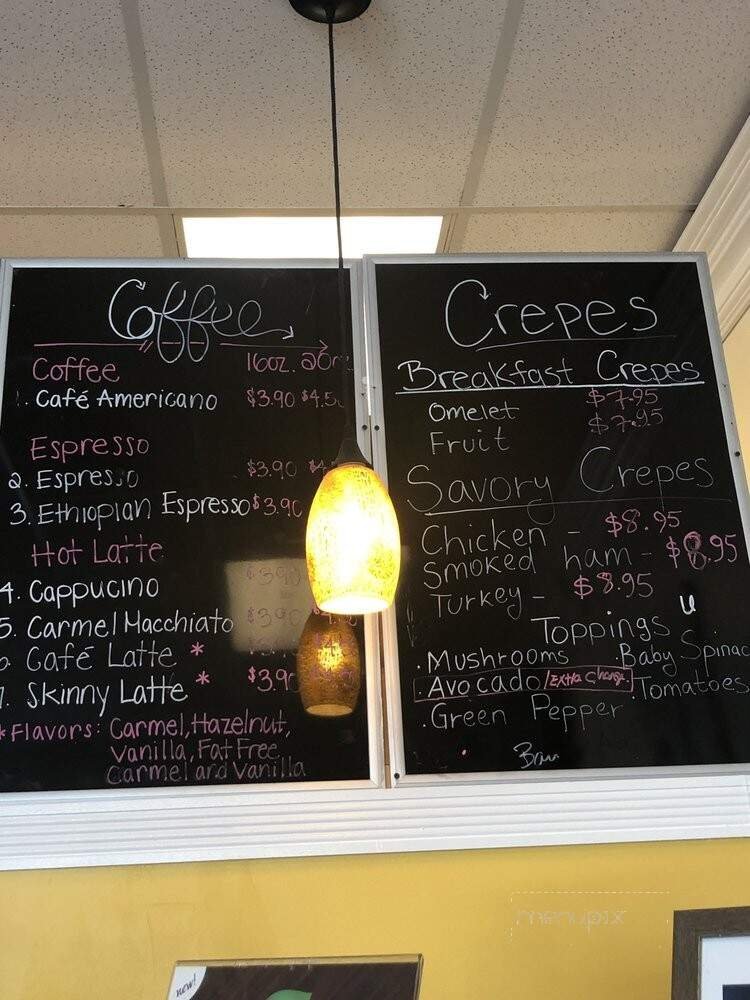 Coffee
Coffee 16oz.
1. Café Americano $3.90
Espresso
2. Espresso $3.90
3. Ethiopian Espresso $3.90
Hot Latte
4. Cappucino $3.90
5. Carmel Macchiato $3.90
Café Latte *
Skinny Latte *
*Flavors: Carmel, Hazelnut,
Vanilla, Fat Free
Carmel and Vanilla
Crepes
Breakfast Crepes
Omelet $7.95
Fruit $7.95
Savory Crepes
Chicken - $8.95
Smoked ham - $8.95
Turkey - $8.95
Toppings
. Mushrooms . Baby
. Avocado /Extra Charge . Tomatoes
. Green Pepper
menupix
new!